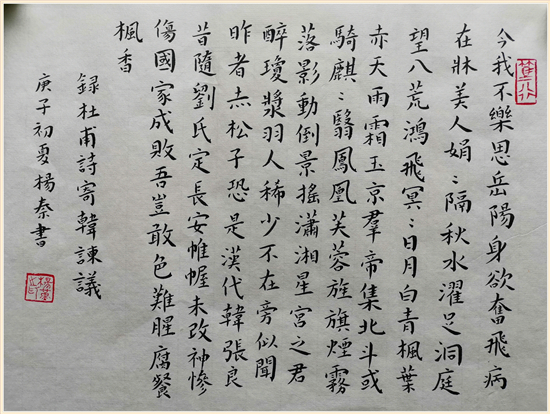 今我不樂思岳陽身欲奮飛病
在牀美人娟〻隔秋水濯足洞庭
望八荒鴻飛冥〻日月白青楓葉
赤天雨霜玉京羣帝集北斗或
騎麒〻翳鳳凰芙蓉旌旗煙霧
落影動倒景搖瀟湘星宮之君
醉瓊漿羽人稀少不在旁似聞
昨者赤松子恐是漢代韓張良
昔隨劉氏定長安帷幄未改神慘
傷國家成敗吾豈敢色難腥腐餐
楓香
録杜甫詩寄韓諫議
庚子初夏楊秦書